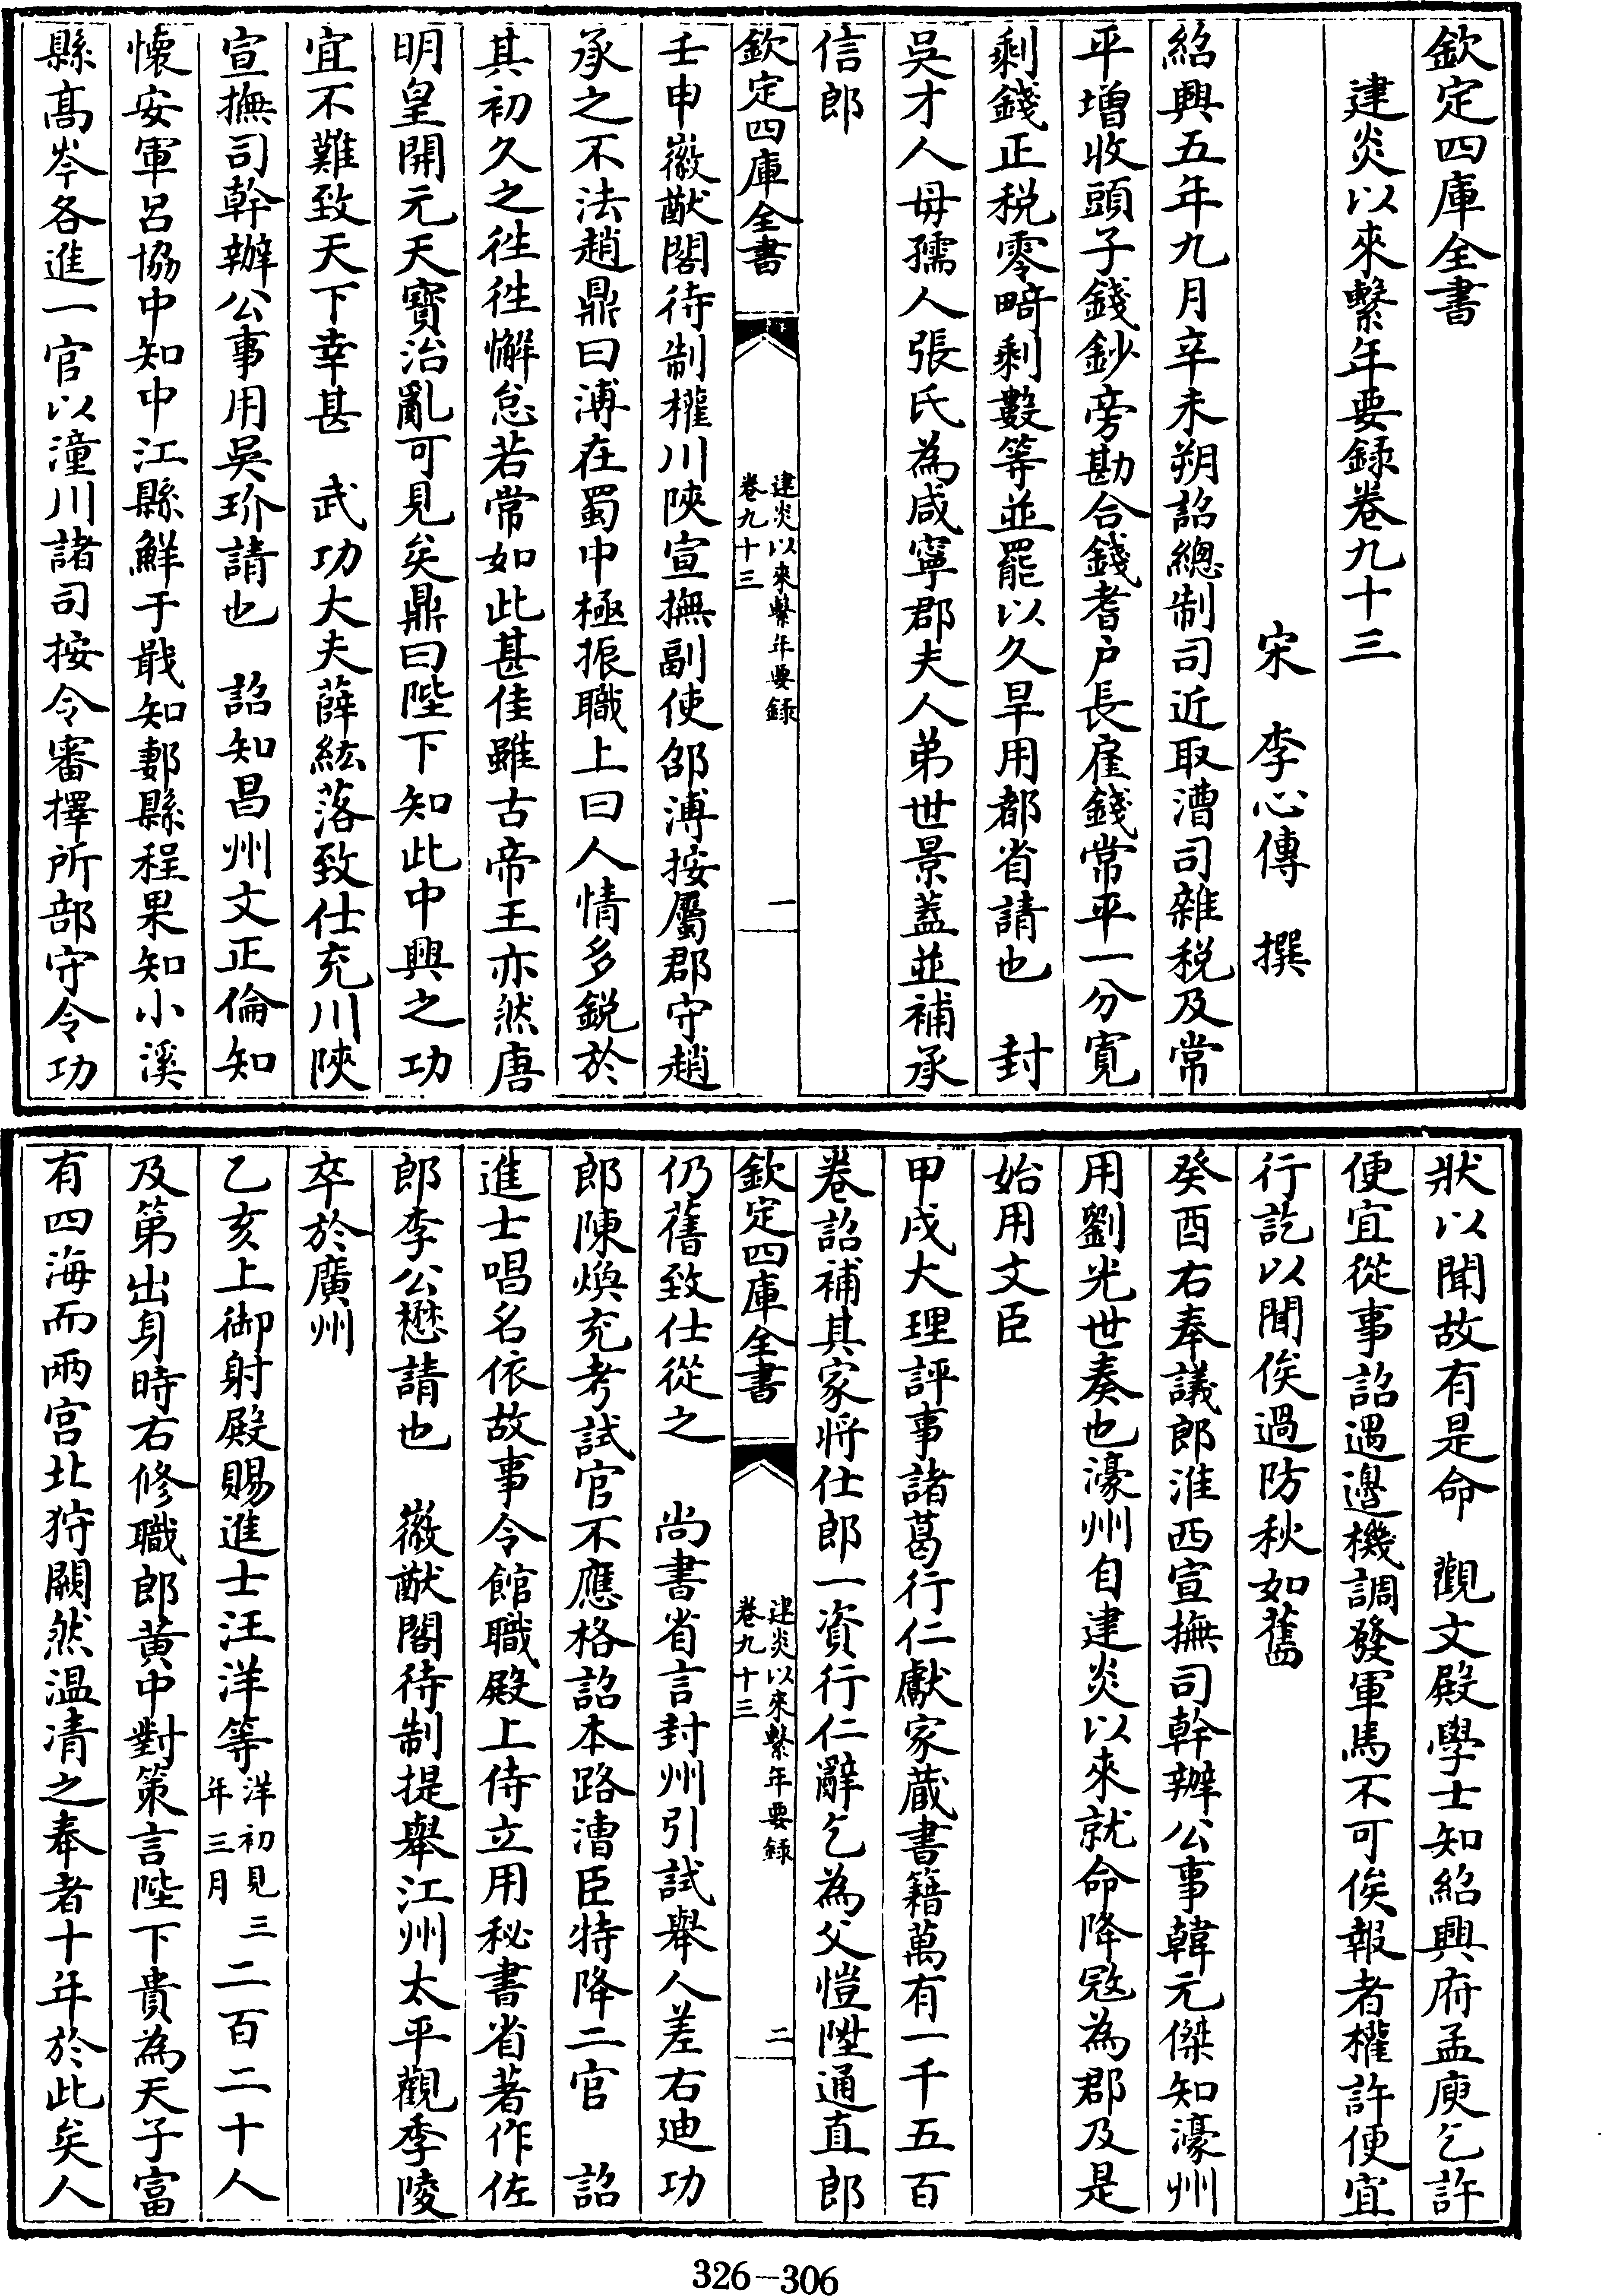 欽定四庫全書
建炎以來繫年要錄卷九十三
宋 李心傳 撰
紹興五年九月辛未朔詔總制司近取漕司雜税及常
平增收頭子錢鈔旁勘合錢耆戶長雇錢常平一分寛
剩錢正税零畸剩數等並罷以久旱用都省請也 封
吳才人母孺人張氏為咸寧郡夫人弟世景葢並補承
信郎
欽定四庫全書
建炎以來繫年要錄
卷九十三
一
壬申徽猷閣待制權川陜宣撫副使邵溥按屬郡守趙
承之不法趙鼎曰溥在蜀中極振職上曰人情多鋭於
其初久之徃徃懈怠若常如此甚佳雖古帝王亦然唐
明皇開元天寳治亂可見矣鼎曰陛下知此中興之功
宜不難致天下幸甚 武功大夫薛紘落致仕充川陜
宣撫司幹辦公事用吳玠請也 詔知昌州文正倫知
懷安軍呂協中知中江縣鮮于戢知郪縣程果知小溪
縣髙岑各進一官以潼川諸司按令審擇所部守令功
狀以聞故有是命 觀文殿學士知紹興府孟庾乞許
便宜從事詔遇邊機調發軍馬不可俟報者權許便宜
行訖以聞俟過防秋如舊
癸酉右奉議郎淮西宣撫司幹辦公事韓元傑知濠州
用劉光世奏也濠州自建炎以來就命降冦為郡及是
始用文臣
甲戌大理評事諸葛行仁獻家蔵書籍萬有一千五百
卷詔補其家將仕郎一資行仁辭乞為父愷陞通直郎
欽定四庫全書
建炎以來繫年要錄
卷九十三
二
仍舊致仕從之 尚書省言封州引試舉人差右廸功
郎陳煥充考試官不應格詔本路漕臣特降二官 詔
進士唱名依故事令館職殿上侍立用秘書省著作佐
郎李公懋請也 徽猷閣待制提舉江州太平觀季陵
卒於廣州
乙亥上御射殿賜進士汪洋等洋初見三年三月二百二十人
及第出身時右修職郎黄中對策言陛下貴為天子富
有四海而兩宫北狩闕然温凊之奉者十年於此矣人
326-306